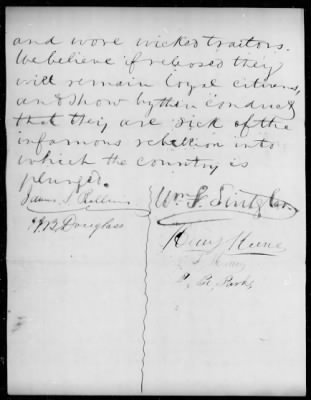 and wore wicked traitors.
We believe if released they
will remain loyal citizens,
and show by their conduct
that they are sick of the
infamous rebellion into
which the country is
plunged.
James S Rollins
Wm. F. Switzler.
J B Douglass
Henry Keene